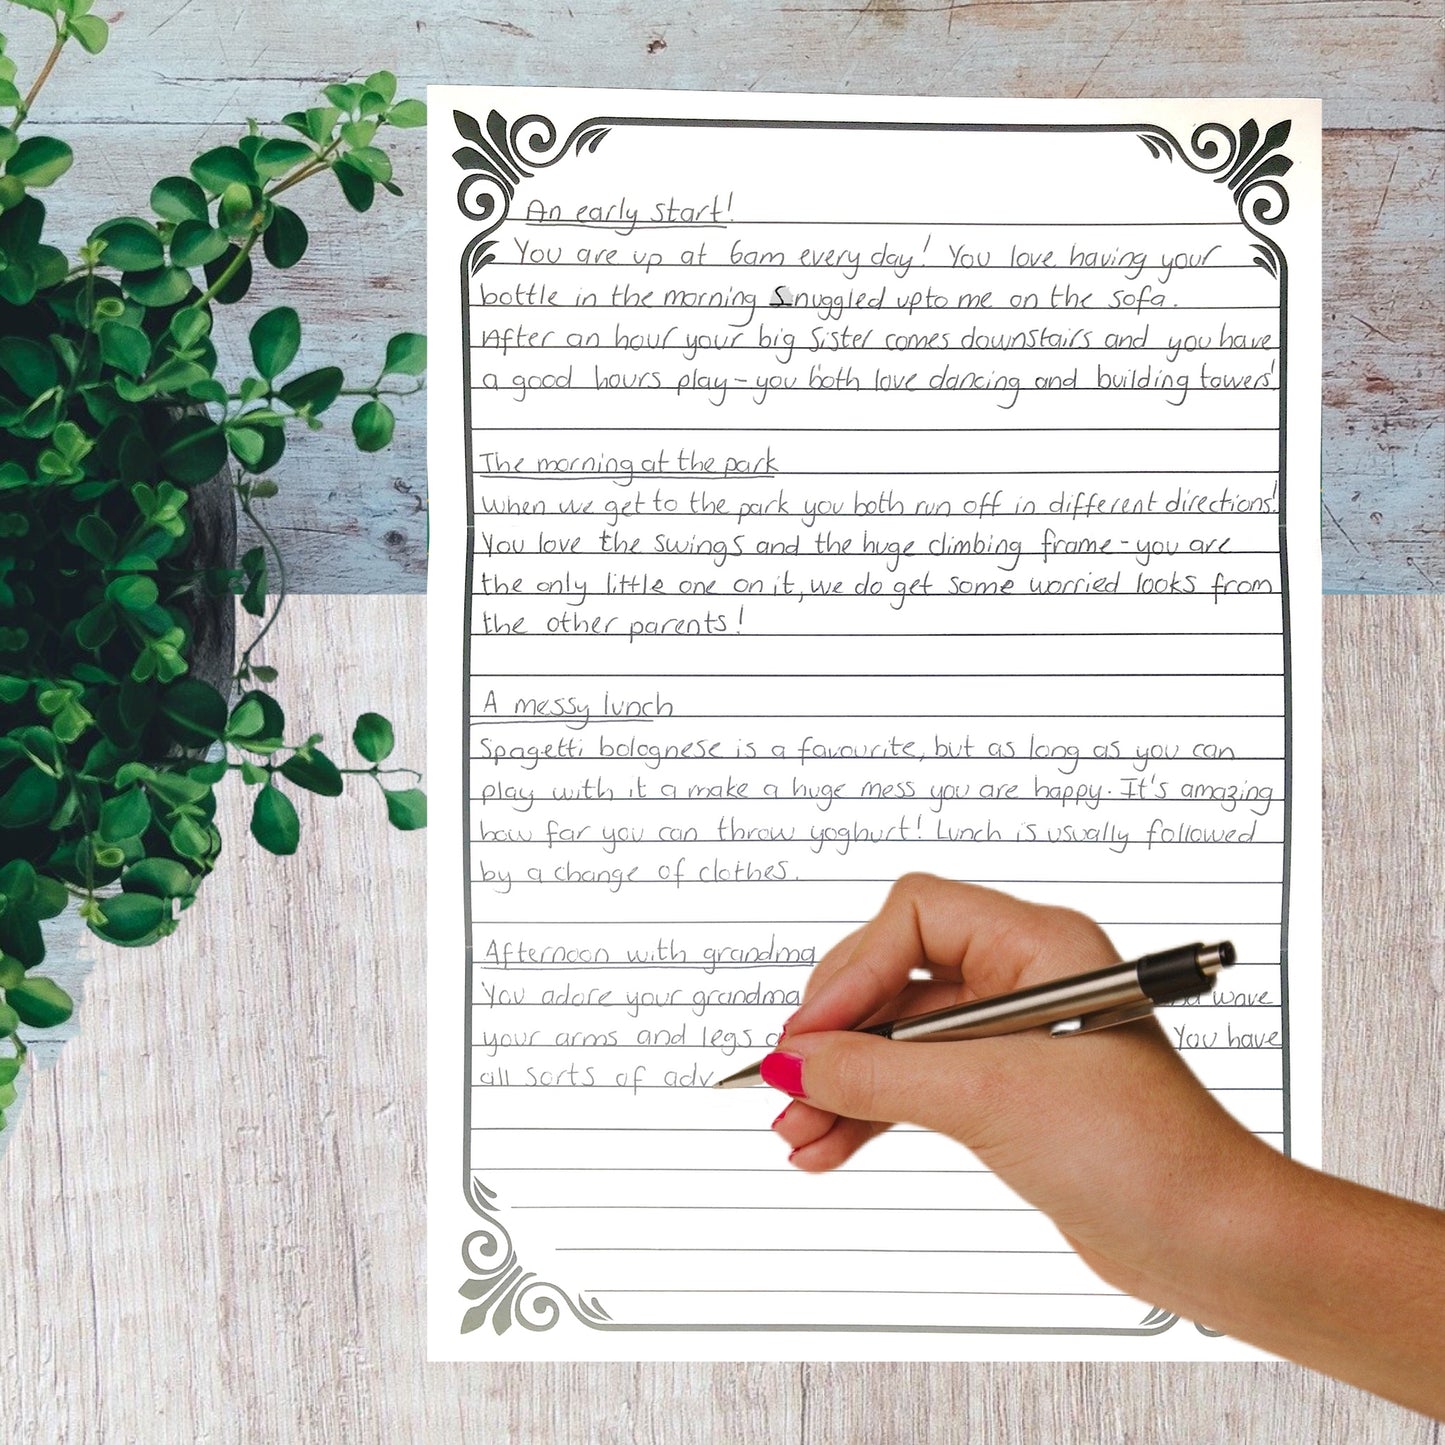 An early start!
You are up at 6am every day! You love having your
bottle in the morning snuggled upto me on the sofa.
After an hour your big sister comes downstairs and you have
a good hours play - you both love dancing and building towers!
The morning at the park
When we get to the park you both run off in different directions!
You love the swings and the huge climbing frame - you are
the only little one on it, we do get some worried looks from
the other parents!
A messy lunch
Spagetti bolognese is a favourite, but as long as you can
play with it a make a huge mess you are happy. It's amazing
how far you can throw yoghurt! Lunch is usually followed
by a change of clothes.
Afternoon with grandma
You adore your grandma wave
your arms and legs You have
all sorts of adv